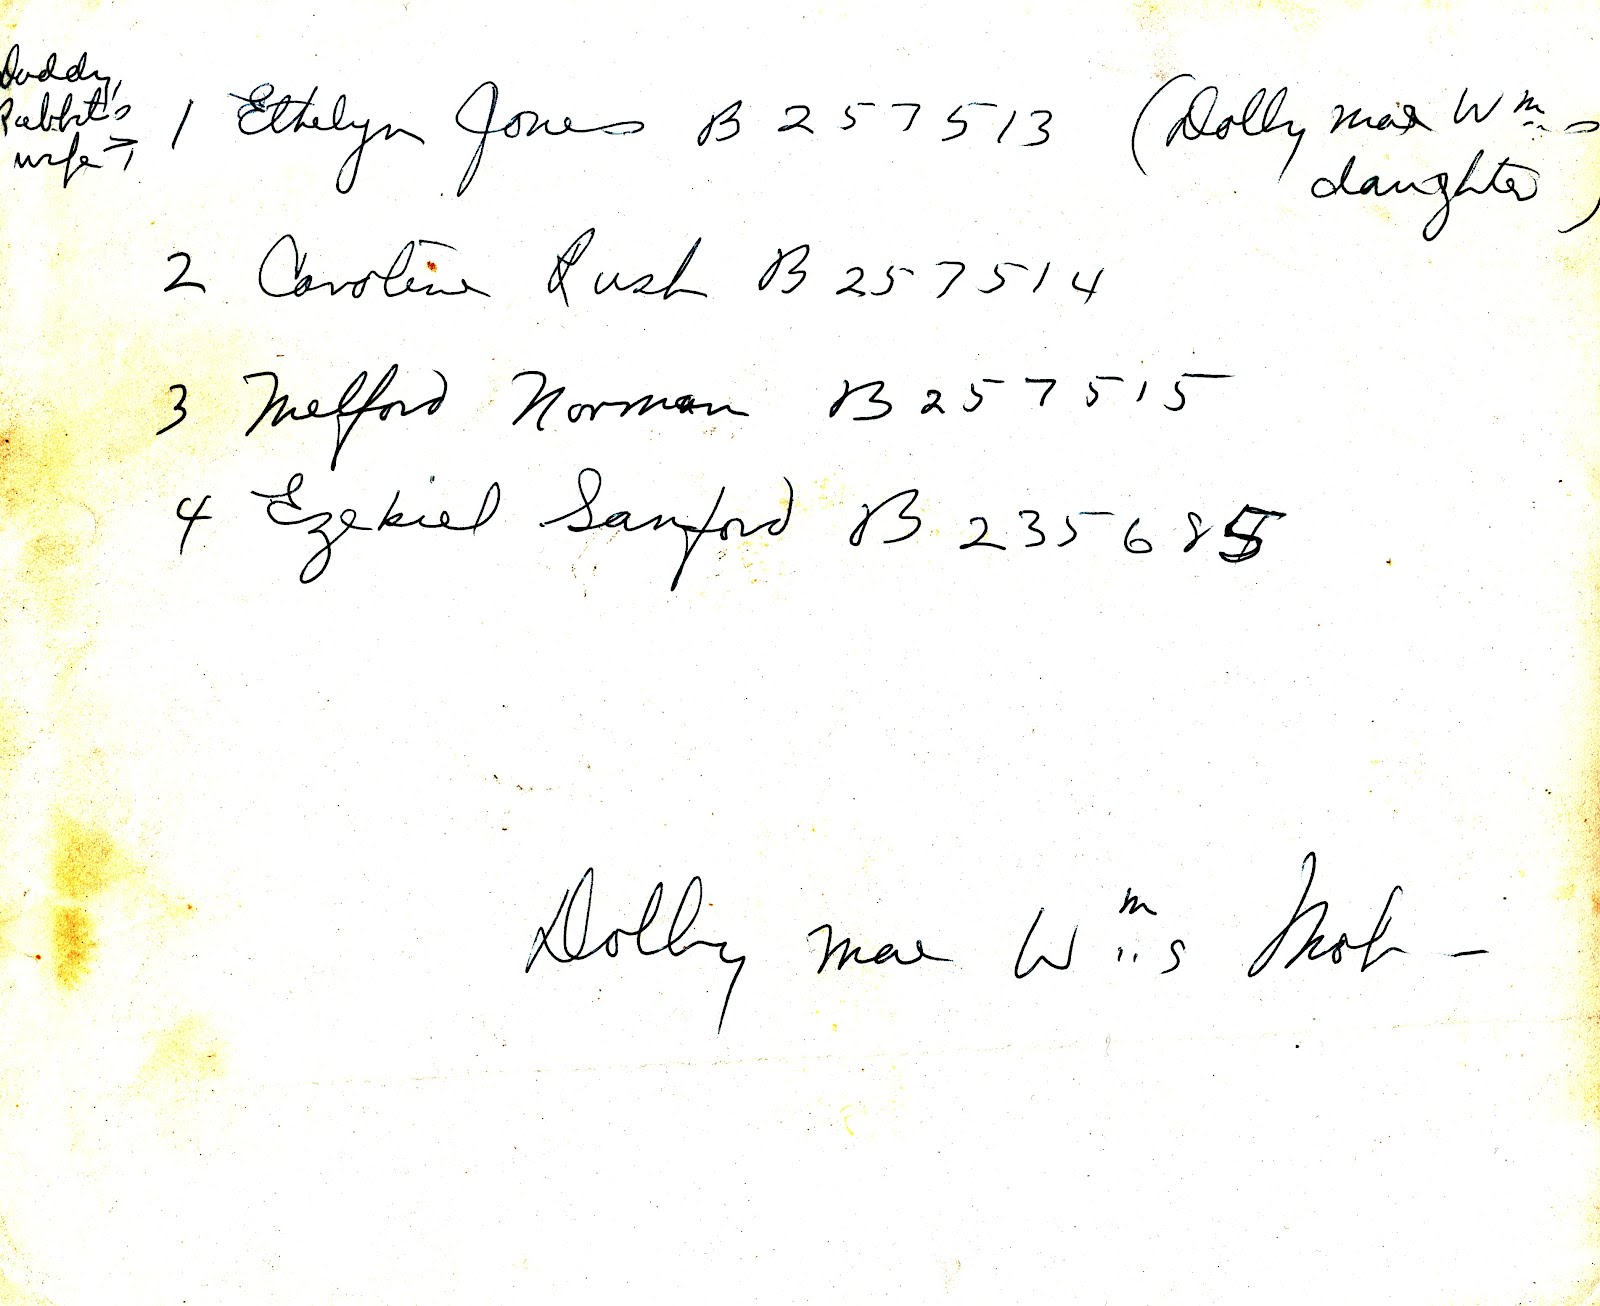 Daddy
Rabbit's
wife →
1 Ethelyn Jones B 257513 (Dolly Mae Wm s
daughter)
2 Caroline Rush B 257514
3 Melford Norman B 257515
4 Ezekiel Sanford B 235685
Dolly Mae Wm s Mob —